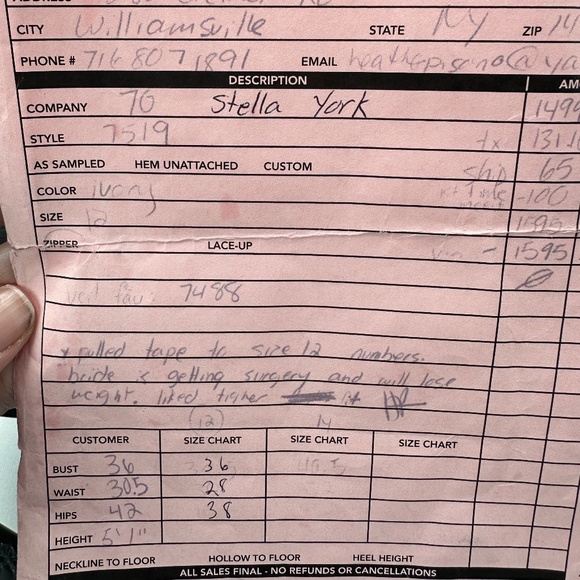 CITY Williamsville STATE NY ZIP 14
PHONE # 716 807 1891 EMAIL
DESCRIPTION AM
COMPANY 70 Stella York 149
STYLE 7519 tx 131.
AS SAMPLED HEM UNATTACHED CUSTOM ship 65
COLOR ivory -100
SIZE 12 1595
ZIPPER LACE-UP - 1595
veil fav: 7488
* pulled tape to size 12 numbers.
bride is getting surgery and will lose
weight. liked tighter fit
(12) 14
CUSTOMER SIZE CHART SIZE CHART SIZE CHART
BUST 36 36
WAIST 30.5 28
HIPS 42 38
HEIGHT 5'1"
NECKLINE TO FLOOR HOLLOW TO FLOOR HEEL HEIGHT
ALL SALES FINAL - NO REFUNDS OR CANCELLATIONS